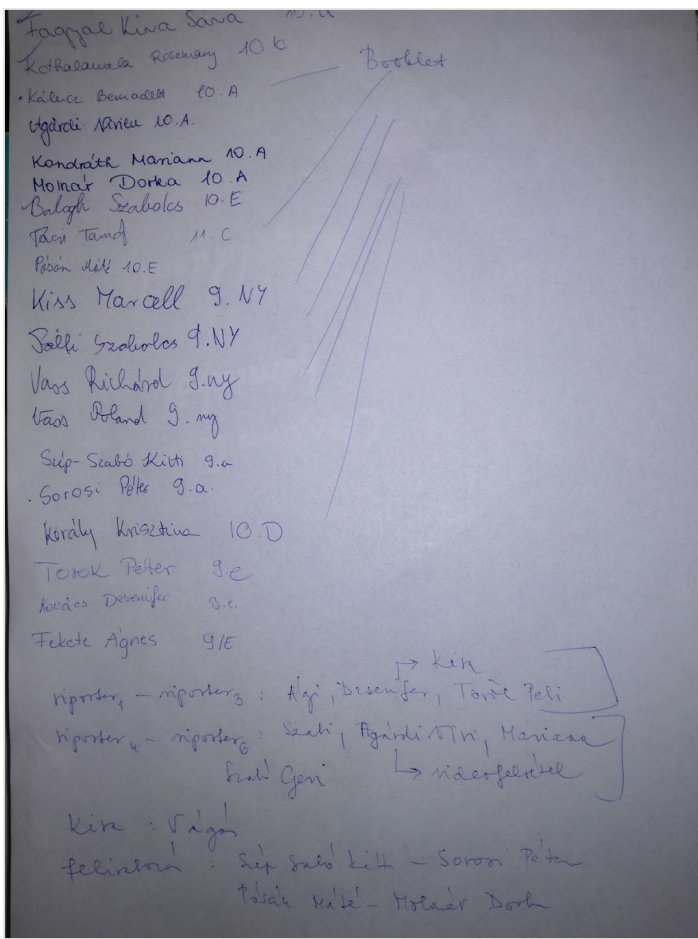 Fagyal Kira Sára 10.a
Kothalawala Rosemary 10 b
Booklet
Bernadett 10.A
Agárdi Nirieu 10.A.
Kondráth Mariann 10.A
Molnár Dorka 10.A
Balogh Szabolcs 10.E
11.C
Pósán Máté 10.E
Kiss Marcell 9.NY
Szabolcs 9.NY
Vass Richárd 9.ny
Vass Roland 9.ny
Szép-Szabó Kitti 9.a
Sorosi Péter 9.a.
Király Krisztina 10.D
Török Petter 9.e
Kovács Dzsenifer 9.e.
Fekete Ágnes 9/E
→ Kira
riporter1 – riporter3 : Ági, Dzsenifer, Török Peti
riporter4 – riporter6 : Szabi, Agárdi Niri, Mariann
Szabó Geri → videófelvétel
Kira : Vágás
Szép Szabó Kitti – Sorosi Péter
Pósán Máté – Molnár Dorka